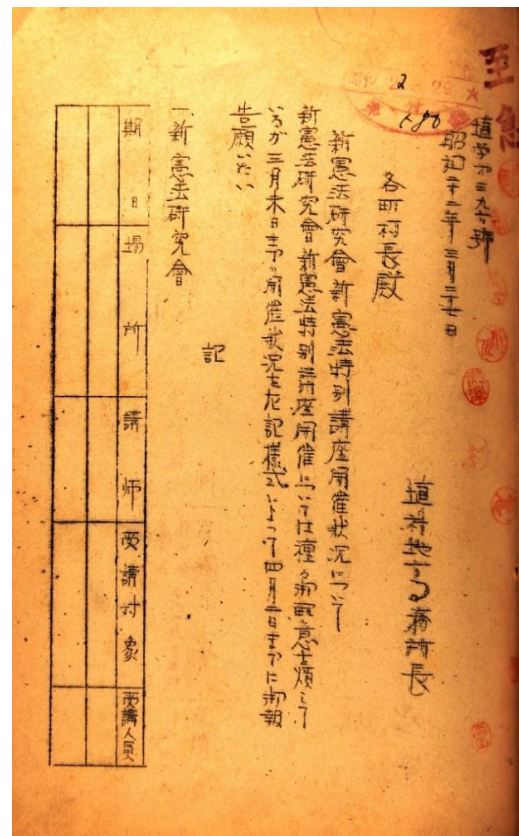 至急
埴学第三九六號
昭和二十二年三月二十七日
各町村長殿
埴科地方事務所長
新憲法研究會新憲法特別講座開催状況について
新憲法研究會新憲法特別講座開催については種々御配意を煩して
いるが三月末日までの開催状況を左記様式によって四月二日までに御報
告願いたい
記
一、新憲法研究會
期日
場所
講師
受講対象
受講人員